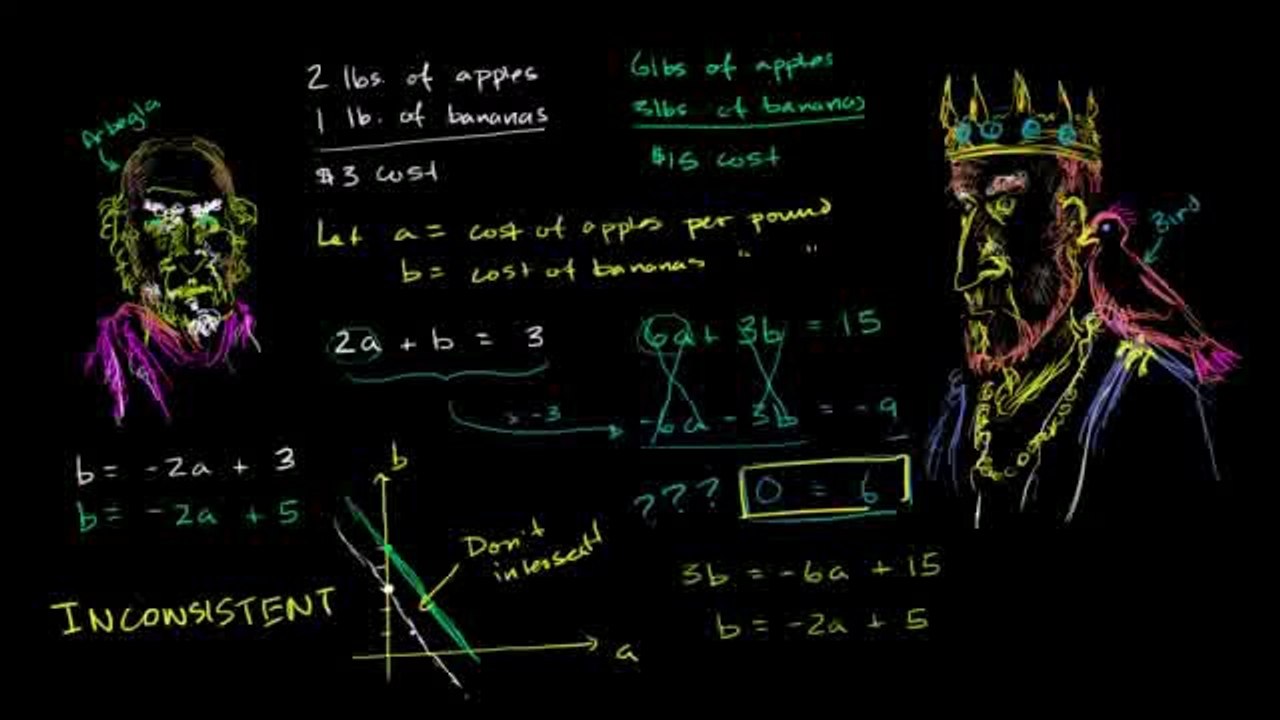 Arbegla
2 lbs. of apples
1 lb. of bananas
$3 cost
6lbs of apples
3lbs of bananas
$15 cost
Bird
Let a = cost of apples per pound
b = cost of bananas " "
2a + b = 3
6a + 3b = 15
x -3
-6a - 3b = -9
??? 0 = 6
b = -2a + 3
b = -2a + 5
b
a
Don't
intersect
INCONSISTENT
3b = -6a + 15
b = -2a + 5